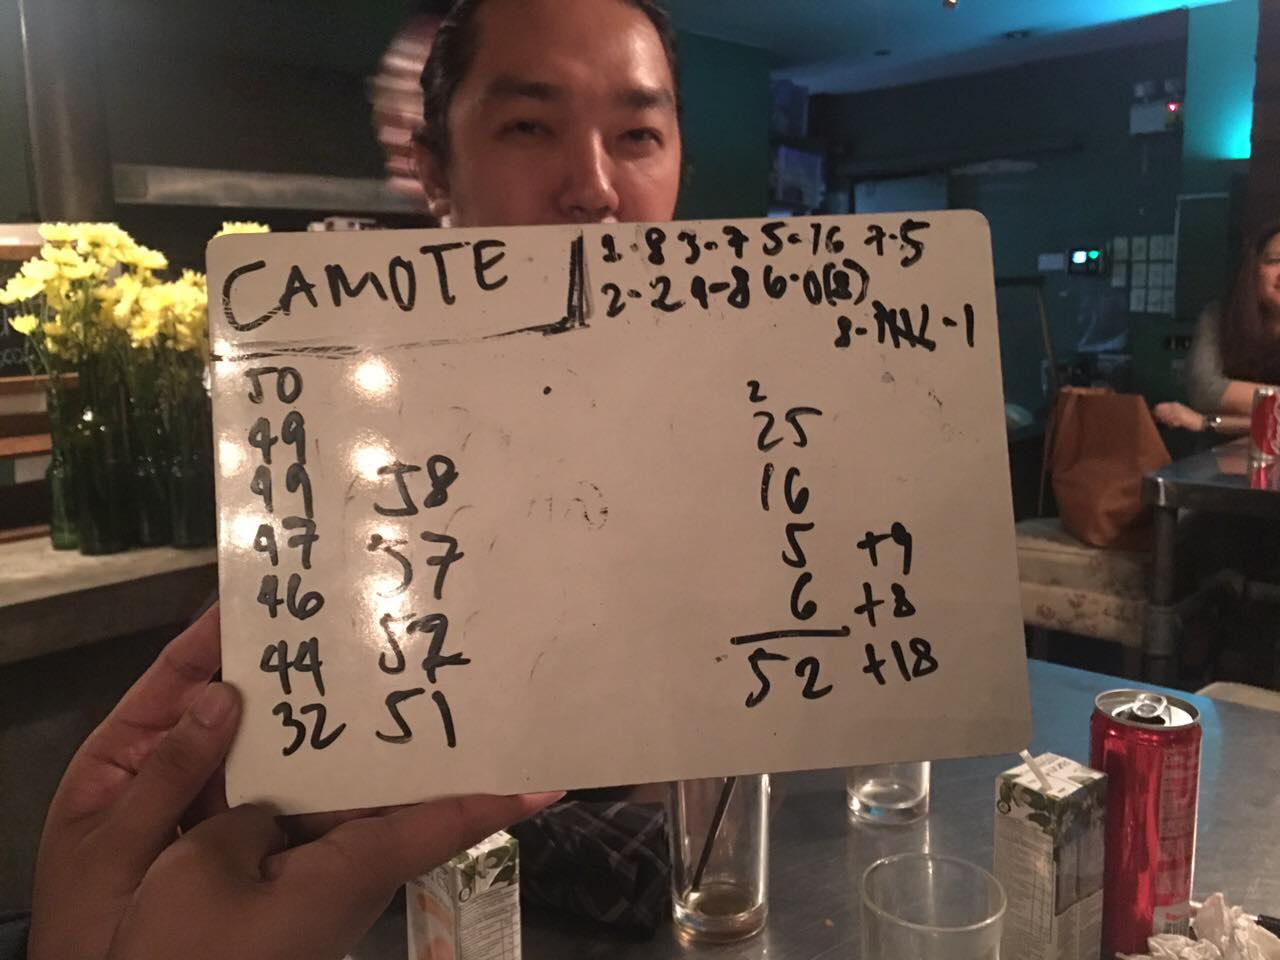 CAMOTE
1-8 3-7 5-16 7-5
2-2 4-8 6-0(8)
8- -1
50
49
49 58
47 57
46 52
44 51
32
2
25
16
5 +9
6 +8
52 +18